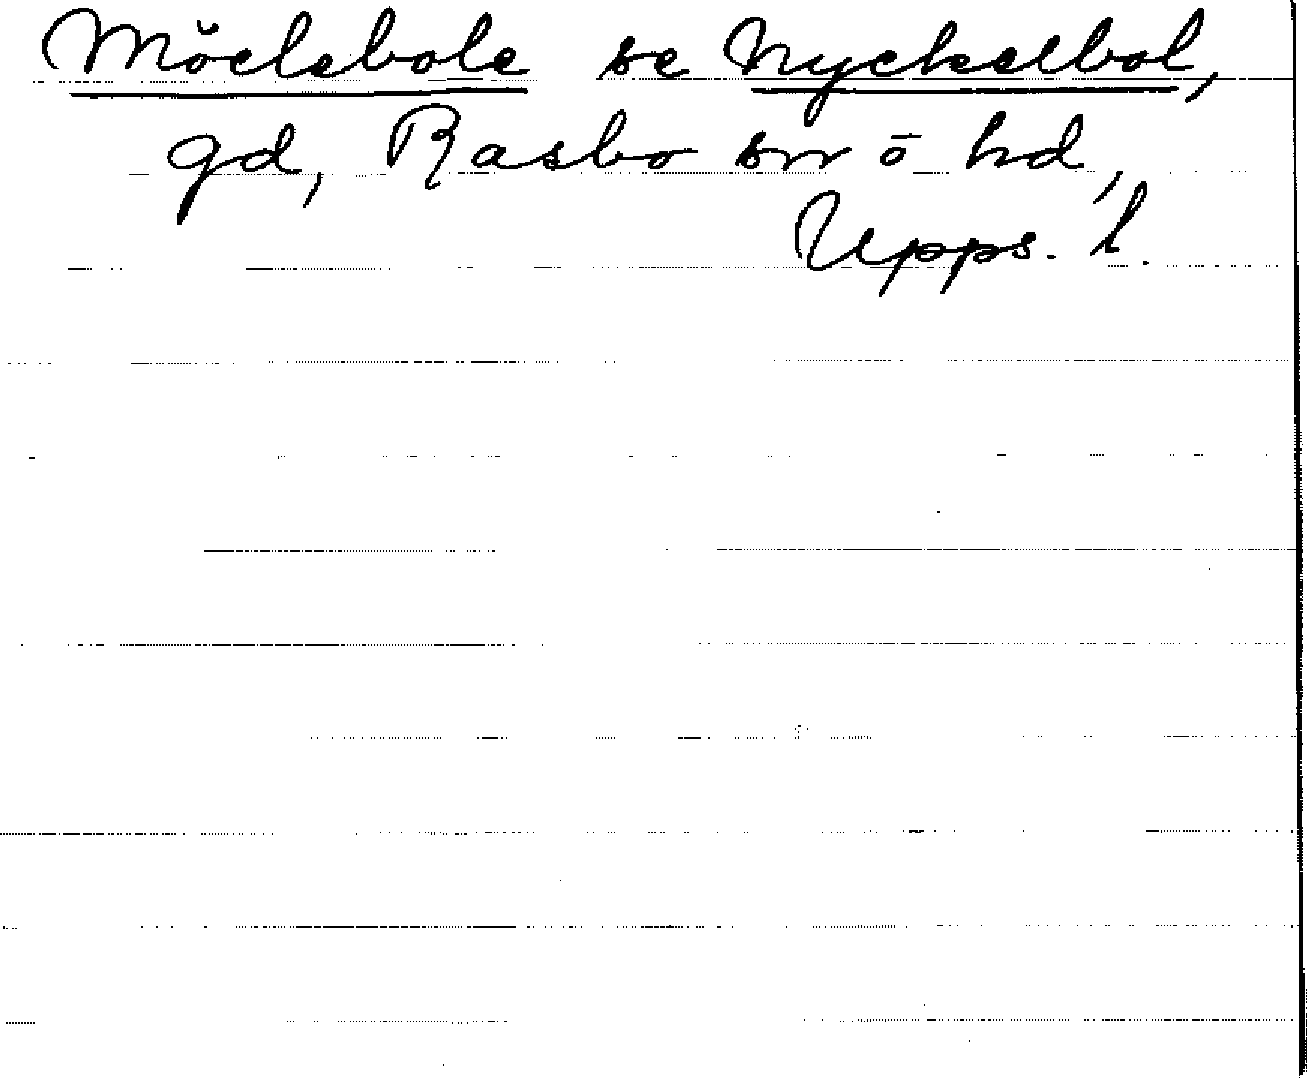 Möclebole se Nyckelbol,
gd, Rasbo sn ō hd,
Upps. l.